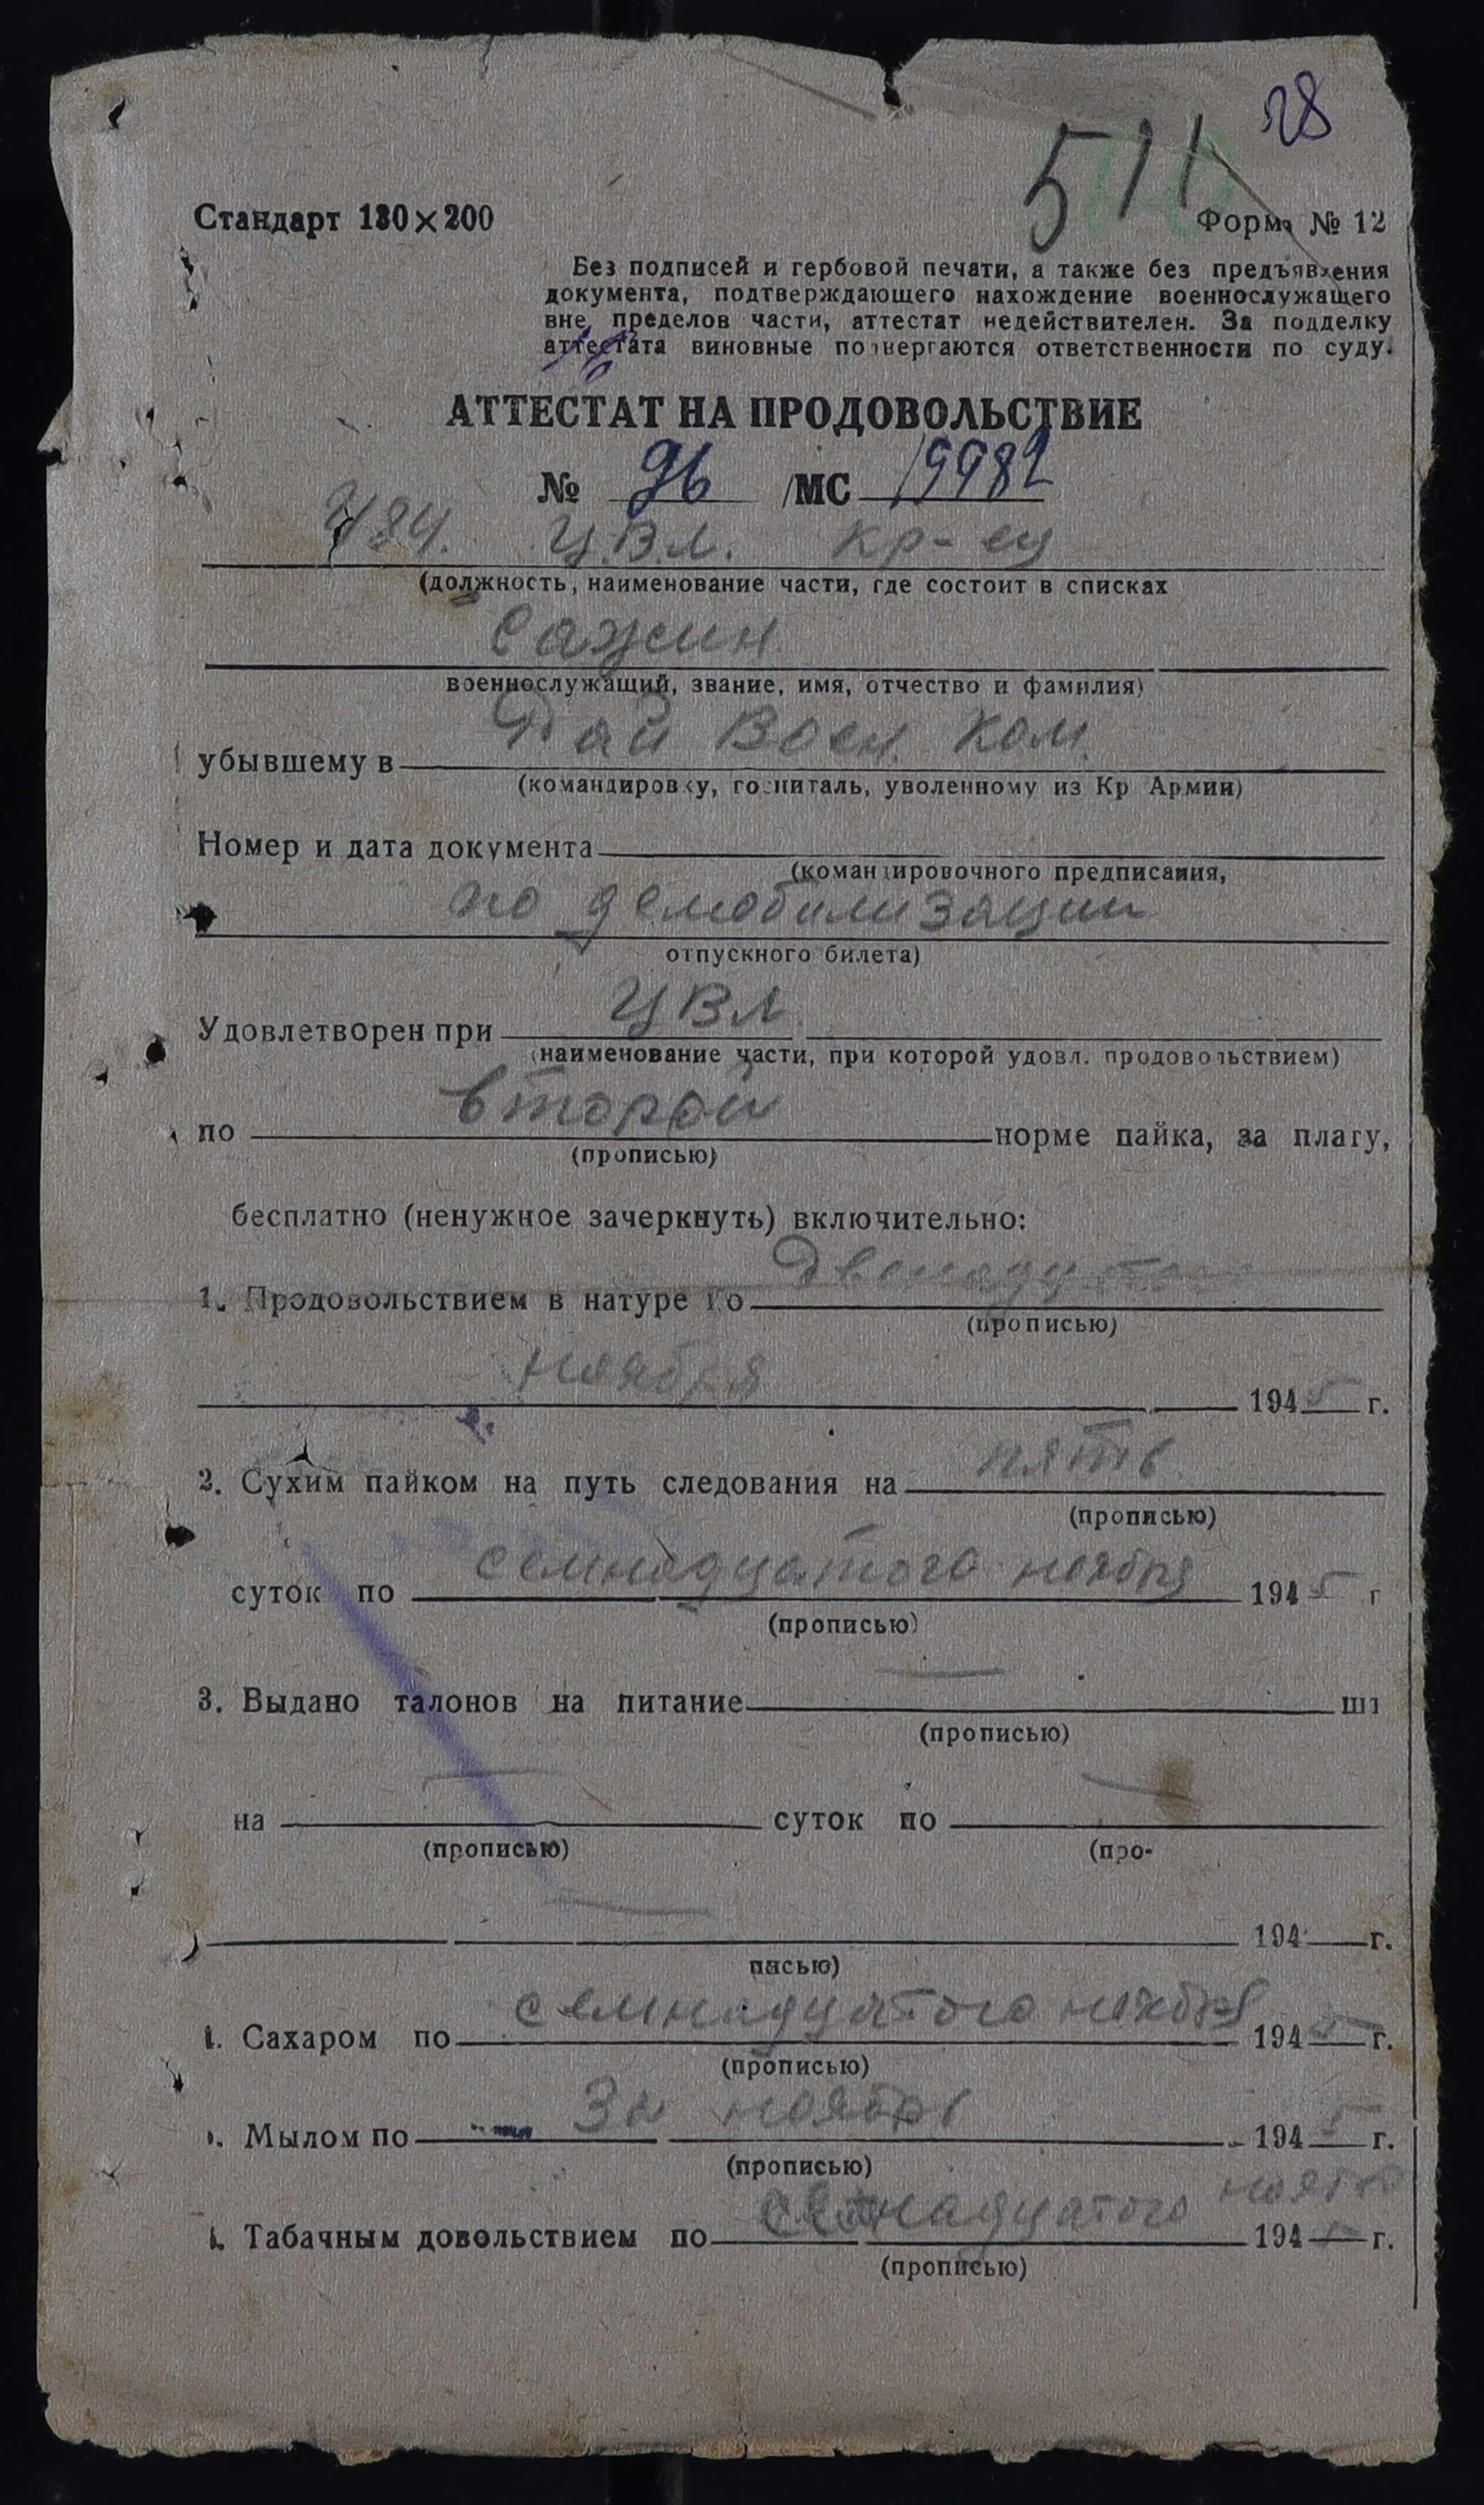 28
511
Стандарт 130×200
Форма № 12
Без подписей и гербовой печати, а также без предъявления
документа, подтверждающего нахождение военнослужащего
вне пределов части, аттестат недействителен. За подделку
аттестата виновные подвергаются ответственности по суду.
АТТЕСТАТ НА ПРОДОВОЛЬСТВИЕ
№ 96 /МС 19982
Ц.В.Л. кр-ец
(должность, наименование части, где состоит в списках
Сажин
военнослужащий, звание, имя, отчество и фамилия)
убывшему в Рай Воен. Ком.
(командировку, госпиталь, уволенному из Кр Армии)
Номер и дата документа
(командировочного предписания,
по демобилизации
отпускного билета)
Удовлетворен при ЦВЛ
(наименование части, при которой удовл. продовольствием)
по второй норме пайка, за плату,
(прописью)
бесплатно (ненужное зачеркнуть) включительно:
1. Продовольствием в натуре по
(прописью)
ноября 1945 г.
2. Сухим пайком на путь следования на пять
(прописью)
суток по семнадцатого ноября 1945 г
(прописью)
3. Выдано талонов на питание — шт
(прописью)
на — суток по —
(прописью) (про-
— 194 г.
писью)
4. Сахаром по семнадцатого ноября 1945 г.
(прописью)
Мылом по За ноябрь 1945 г.
(прописью)
Табачным довольствием по семнадцатого ноября 1945 г.
(прописью)